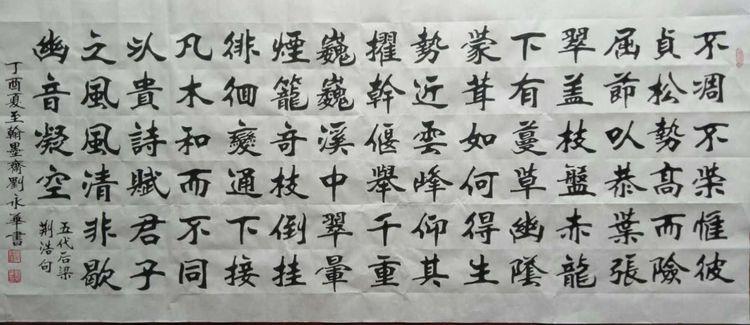 不凋不荣惟彼
貞松勢高而險
屈莭以恭葉張
翠盖枝盤赤龍
下有蔓草幽陰
蒙茸如何得生
勢近雲峰仰其
擢幹偃舉千重
巍巍溪中翠暈
煙籠竒枝倒挂
徘徊變通下接
凡木和而不同
以貴詩賦君子
之風風清非歇
幽音凝空
五代后梁
荆浩句
丁酉夏至翰墨齋劉永華書